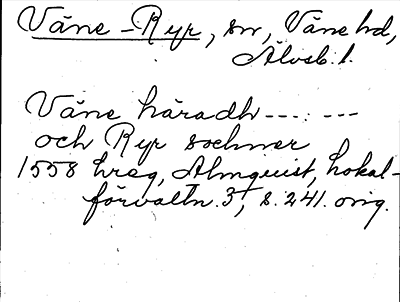 Väne-Ryr, sn, Väne hd,
Älvsb. l.
Väne häradh ---. ---
och Ryr sochner
1558 hreg, Almquist, Lokal-
förvaltn. 3, s. 241. orig.